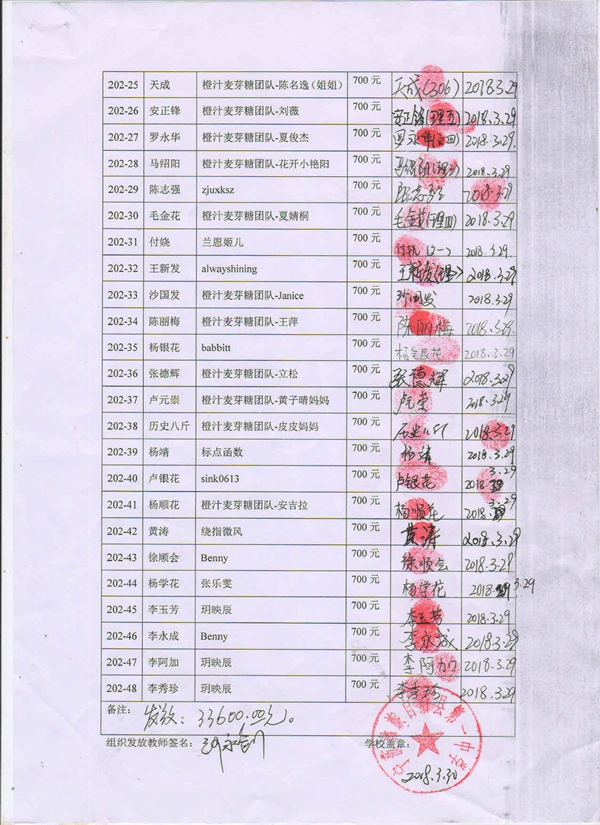 202-25 天成 橙汁麦芽糖团队-陈名逸（姐姐） 700 元 天成(306) 2018.3.29
202-26 安正锋 橙汁麦芽糖团队-刘薇 700 元 安正锋 2018.3.29
202-27 罗永华 橙汁麦芽糖团队-夏俊杰 700 元 罗永华 2018.3.29.
202-28 马绍阳 橙汁麦芽糖团队-花开小艳阳 700 元 2018.3.29
202-29 陈志强 zjuxksz 700 元 陈志强 2018.3.29
202-30 毛金花 橙汁麦芽糖团队-夏婧桐 700 元 毛金花 2018.3.29
202-31 付娆 兰恩姬儿 700 元 付娆 2018.3.29.
202-32 王新发 alwayshining 700 元 2018.3.29
202-33 沙国发 橙汁麦芽糖团队-Janice 700 元 沙国发 2018.3.29
202-34 陈丽梅 橙汁麦芽糖团队-王萍 700 元 陈丽梅 2018.3.29.
202-35 杨银花 babbitt 700 元 杨银花 2018.3.29
202-36 张德辉 橙汁麦芽糖团队-立松 700 元 张德辉 2018.3.29
202-37 卢元崇 橙汁麦芽糖团队-黄子晴妈妈 700 元 2018.3.29
202-38 历史八斤 橙汁麦芽糖团队-皮皮妈妈 700 元 历史八斤 2018.3.29
202-39 杨靖 标点函数 700 元 杨靖 2018.3.29
202-40 卢银花 sink0613 700 元 卢银花 2018 3.29
202-41 杨顺花 橙汁麦芽糖团队-安吉拉 700 元 杨顺花 2018 3.29
202-42 黄涛 绕指微风 700 元 黄涛 2018.3.29
202-43 徐顺会 Benny 700 元 徐顺会 2018.3.29
202-44 杨学花 张乐雯 700 元 杨学花 2018 3.29
202-45 李玉芳 玥映辰 700 元 李玉芳 2018.3.29
202-46 李永成 Benny 700 元 李永成 2018.3.29
202-47 李阿加 玥映辰 700 元 李阿加 2018.3.29
202-48 李秀珍 玥映辰 700 元 李秀珍 2018.3.29
备注： 发放：33600.00元。
组织发放教师签名： 学校盖章：
第一中学
2018.3.30